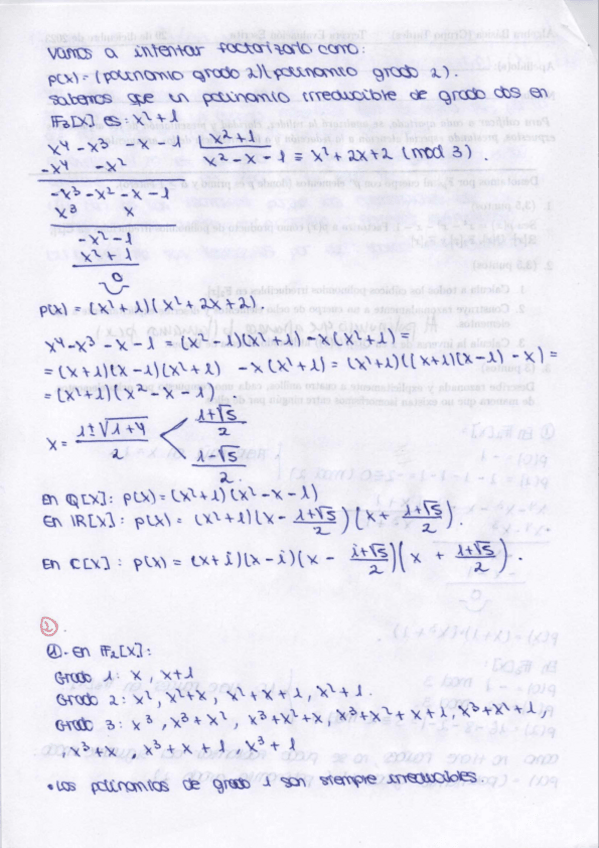 Vamos a intentar factorizarlo como:
p(x) = (polinomio grado 2)(polinomio grado 2).
Sabemos que un polinomio irreducible de grado dos en
F₃[x] es: x²+1
x⁴ - x³ - x - 1 | x²+1
-x⁴ - x² x² - x - 1 ≡ x² + 2x + 2 (mod 3).
-x³ - x² - x - 1
x³ x
-x² - 1
x² + 1
0
p(x) = (x²+1)(x²+2x+2).
x⁴-x³-x-1 = (x²-1)(x²+1) - x(x²+1) =
= (x+1)(x-1)(x²+1) - x(x²+1) = (x²+1)((x+1)(x-1) - x) =
= (x²+1)(x²-x-1).
x = 1±√1+4 / 2 < 1+√5 / 2
1-√5 / 2.
En Q[x]: p(x) = (x²+1)(x²-x-1)
En R[x]: p(x) = (x²+1)(x - 1+√5 / 2)(x + 1+√5 / 2).
En C[x]: p(x) = (x+i)(x-i)(x - 1+√5 / 2)(x + 1+√5 / 2).
②.
①. En F₂[x]:
Grado 1: x, x+1
Grado 2: x², x²+x, x²+x+1, x²+1.
Grado 3: x³, x³+x², x³+x²+x, x³+x²+x+1, x³+x²+1,
, x³+x, x³+x+1, x³+1
• Los polinomios de grado 1 son siempre irreducibles